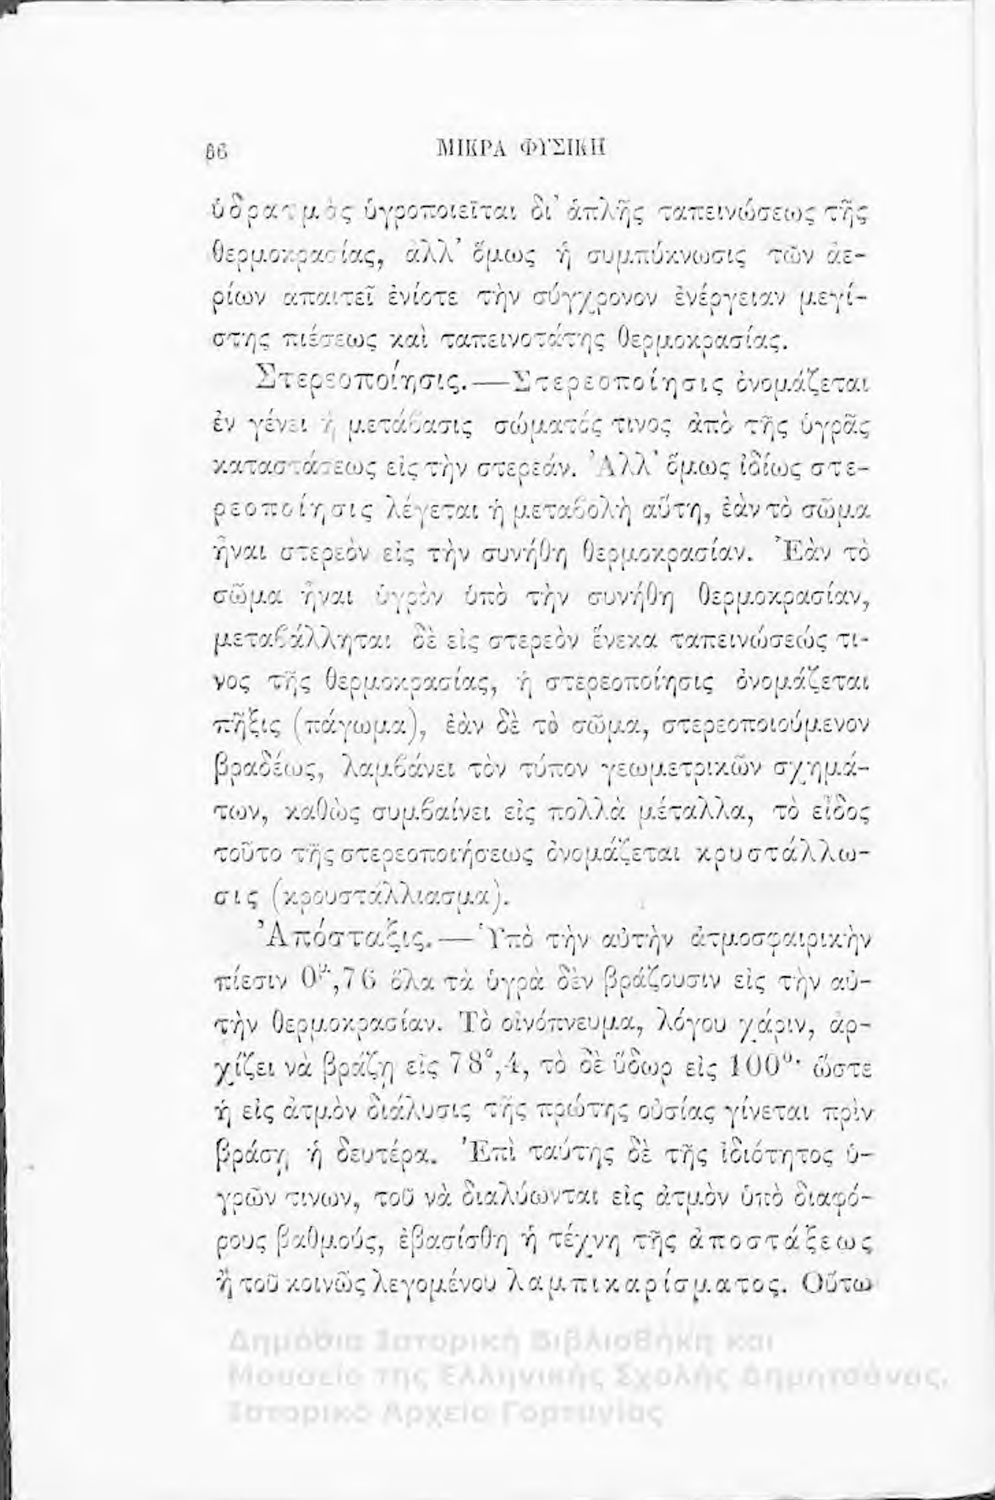 66 ΜΙΚΡΑ ΦΥΣΙΚΗ
ὑδρατμὸς ὑγροποιεῖται δι᾽ ἁπλῆς ταπεινώσεως τῆς
θερμοκρασίας, ἀλλ᾽ ὅμως ἡ συμπύκνωσις τῶν ἀε-
ρίων ἀπαιτεῖ ἐνίοτε τὴν σύγχρονον ἐνέργειαν μεγί-
στης πιέσεως καὶ ταπεινοτάτης θερμοκρασίας.
Στερεοποίησις.—Στερεοποίησις ὀνομάζεται
ἐν γένει ἡ μετάβασις σώματός τινος ἀπὸ τῆς ὑγρᾶς
καταστάσεως εἰς τὴν στερεάν. Ἀλλ᾽ ὅμως ἰδίως στε-
ρεοποίησις λέγεται ἡ μεταβολὴ αὕτη, ἐὰν τὸ σῶμα
ἦναι στερεὸν εἰς τὴν συνήθη θερμοκρασίαν. Ἐὰν τὸ
σῶμα ἦναι ὑγρὸν ὑπὸ τὴν συνήθη θερμοκρασίαν,
μεταβάλληται δὲ εἰς στερεὸν ἕνεκα ταπεινώσεώς τι-
νος τῆς θερμοκρασίας, ἡ στερεοποίησις ὀνομάζεται
πῆξις (πάγωμα), ἐὰν δὲ τὸ σῶμα, στερεοποιούμενον
βραδέως, λαμβάνει τὸν τύπον γεωμετρικῶν σχημά-
των, καθὼς συμβαίνει εἰς πολλὰ μέταλλα, τὸ εἶδος
τοῦτο τῆς στερεοποιήσεως ὀνομάζεται κρυστάλλω-
σις (κρουστάλλιασμα).
Ἀπόσταξις.—Ὑπὸ τὴν αὐτὴν ἀτμοσφαιρικὴν
πίεσιν 0μ,76 ὅλα τὰ ὑγρὰ δὲν βράζουσιν εἰς τὴν αὐ-
τὴν θερμοκρασίαν. Τὸ οἰνόπνευμα, λόγου χάριν, ἀρ-
χίζει νὰ βράζῃ εἰς 78°,4, τὸ δὲ ὕδωρ εἰς 100°· ὥστε
ἡ εἰς ἀτμὸν διάλυσις τῆς πρώτης οὐσίας γίνεται πρὶν
βράσῃ ἡ δευτέρα. Ἐπὶ ταύτης δὲ τῆς ἰδιότητος ὑ-
γρῶν τινων, τοῦ νὰ διαλύωνται εἰς ἀτμὸν ὑπὸ διαφό-
ρους βαθμούς, ἐβασίσθη ἡ τέχνη τῆς ἀποστάξεως
ἢ τοῦ κοινῶς λεγομένου λαμπικαρίσματος. Οὕτω
Δημόσια Ιστορική Βιβλιοθήκη και
Μουσείο της Ελληνικής Σχολής Δημητσάνας,
Ιστορικό Αρχείο Γορτυνίας